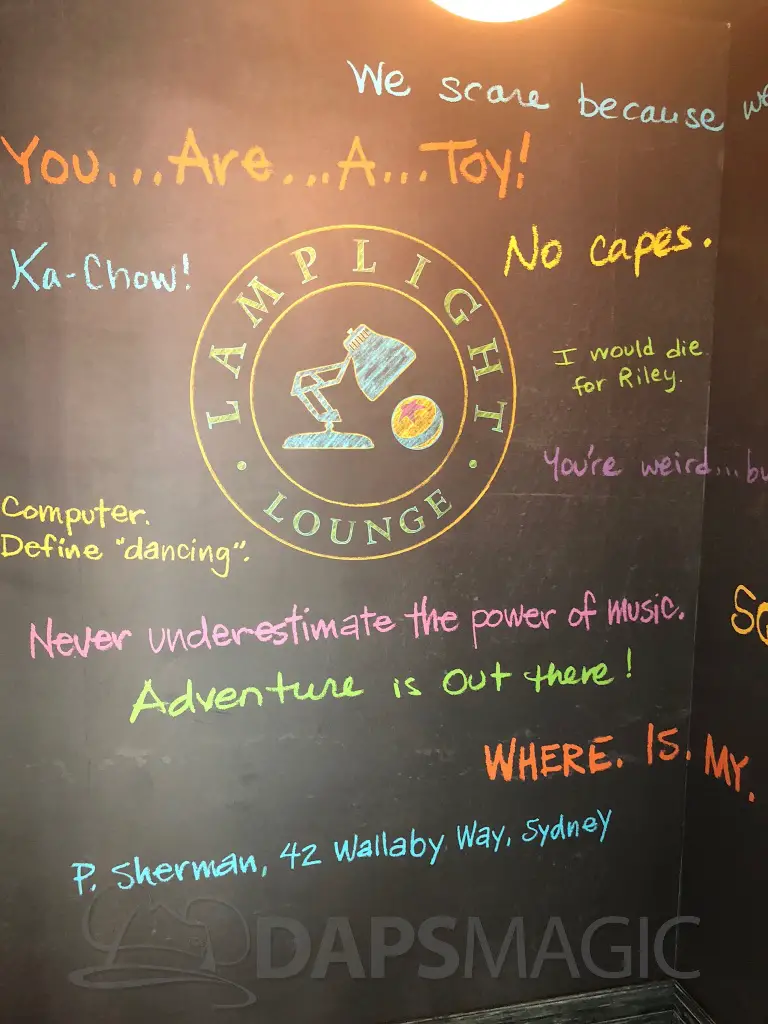 We scare because we
You...Are...A...Toy!
Ka-Chow!
No capes.
LAMPLIGHT
LOUNGE
I would die
for Riley.
You're weird...bu
Computer.
Define "dancing".
Never underestimate the power of music.
SQ
Adventure is out there!
WHERE. IS. MY.
P. Sherman, 42 Wallaby Way, Sydney
DAPSMAGIC